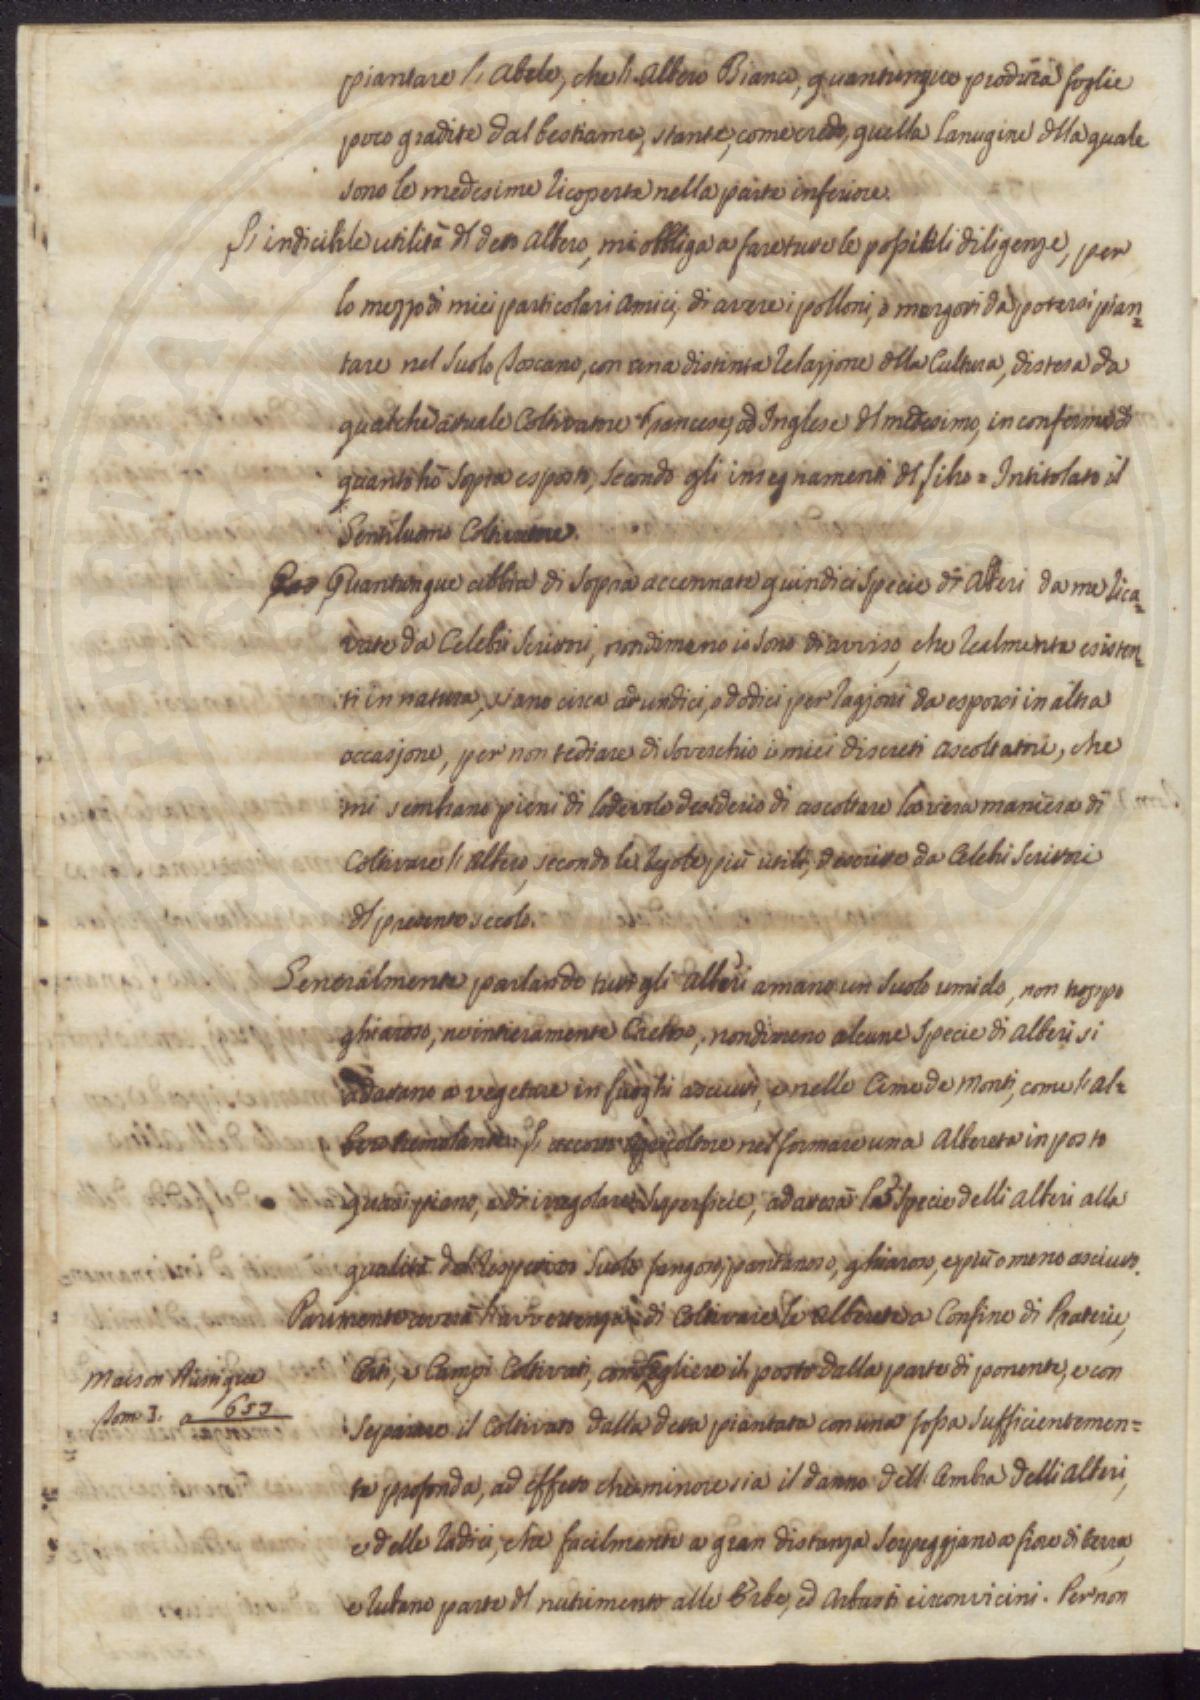 piantare l'Abele, che l'Albero Bianco, quantunque produca foglie
poco gradite dal bestiame, stante, come credo, quella Lanugine dlla quale
sono le medesime ricoperte nella parte inferiore.
L'indicibile utilità dl detto Albero, mi obbliga a fare tutte le possibili diligenze, per
lo mezzo di miei particolari Amici, di avere i polloni, o margotti da potersi pian=
tare nel Suolo Toscano, con una distinta Relazione dlla Cultura, distesa da
qualche attuale Coltivatore Francese, od Inglese dl medesimo, in conferma di
quanto hò sopra esposto, secondo gli insegnamenti dl Libro = Intitolato il
Gentiluomo Coltivatore.
Quantunque abbia di sopra accennate quindici specie di Alberi da me rica=
vate da Celebri Scrittori, nondimeno io sono di avviso, che realmente esisten=
ti in natura, siano circa ad undici, o dodici per ragioni da esporsi in altra
occasione, per non tediare di soverchio i miei discreti ascoltatori, che
mi sembrano pieni di lodevole desiderio di ascoltare la vera maniera di
Coltivare l'Albero, secondo le regole più utili, descritte da Celebri Scrittori
dl presente secolo.
Generalmente parlando tutti gli Alberi amano un Suolo umido, non troppo
ghiaroso, ne intieramente Cretoso, nondimeno alcune specie di Alberi si
adattano a vegetare in luoghi asciutti, e nelle Cime de Monti, come l'Al=
bero tremolante. L' accorto Agricoltore nel formare una Albereta in posto
quasi piano, e di irregolare superficie, adatterà la specie delli Alberi alla
qualità del respettivo Suolo fangoso, pantanoso, ghiaroso, e più o meno asciutto.
Parimente averà l'avvertenza di Coltivare le Alberete a Confine di Praterie,
Orti, e Campi Coltivati, con scegliere il posto dalla parte di ponente, e con
Maison Rustique
Tom. I. a 653
separare il Coltivato dalla detta piantata con una fossa sufficientemen=
te profonda, ad effetto che minore sia il danno dell'Ombra delli Alberi,
e delle radici, che facilmente a gran distanza serpeggiano a fiore di terra,
e rubano parte dl nutrimento alle Erbe, ed Arbusti circonvicini. Per non